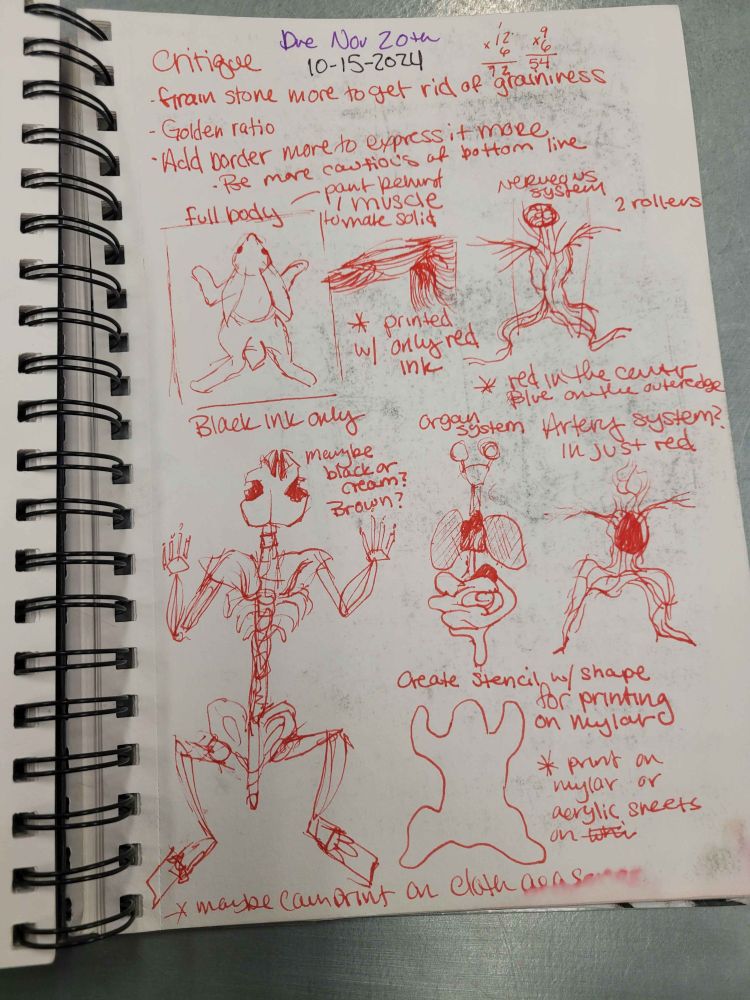 Due Nov 20th
Critique
10-15-2024
12
x 6
72
x9
6
54
- Grain stone more to get rid of graininess
- Golden ratio
- Add border more to express it more
- Be more cautious of bottom line
full body
paint behind
muscle
to make solid
Nerveous
system
2 rollers
* printed
w/ only red
ink
* red in the center
Blue on the outeredge
Black ink only
maybe
black or
cream?
Brown?
Organ
system
Artery system?
in just red
Create stencil w/ shape
for printing
on mylar
* print on
mylar or
acrylic sheets
on
* maybe can print on cloth as as